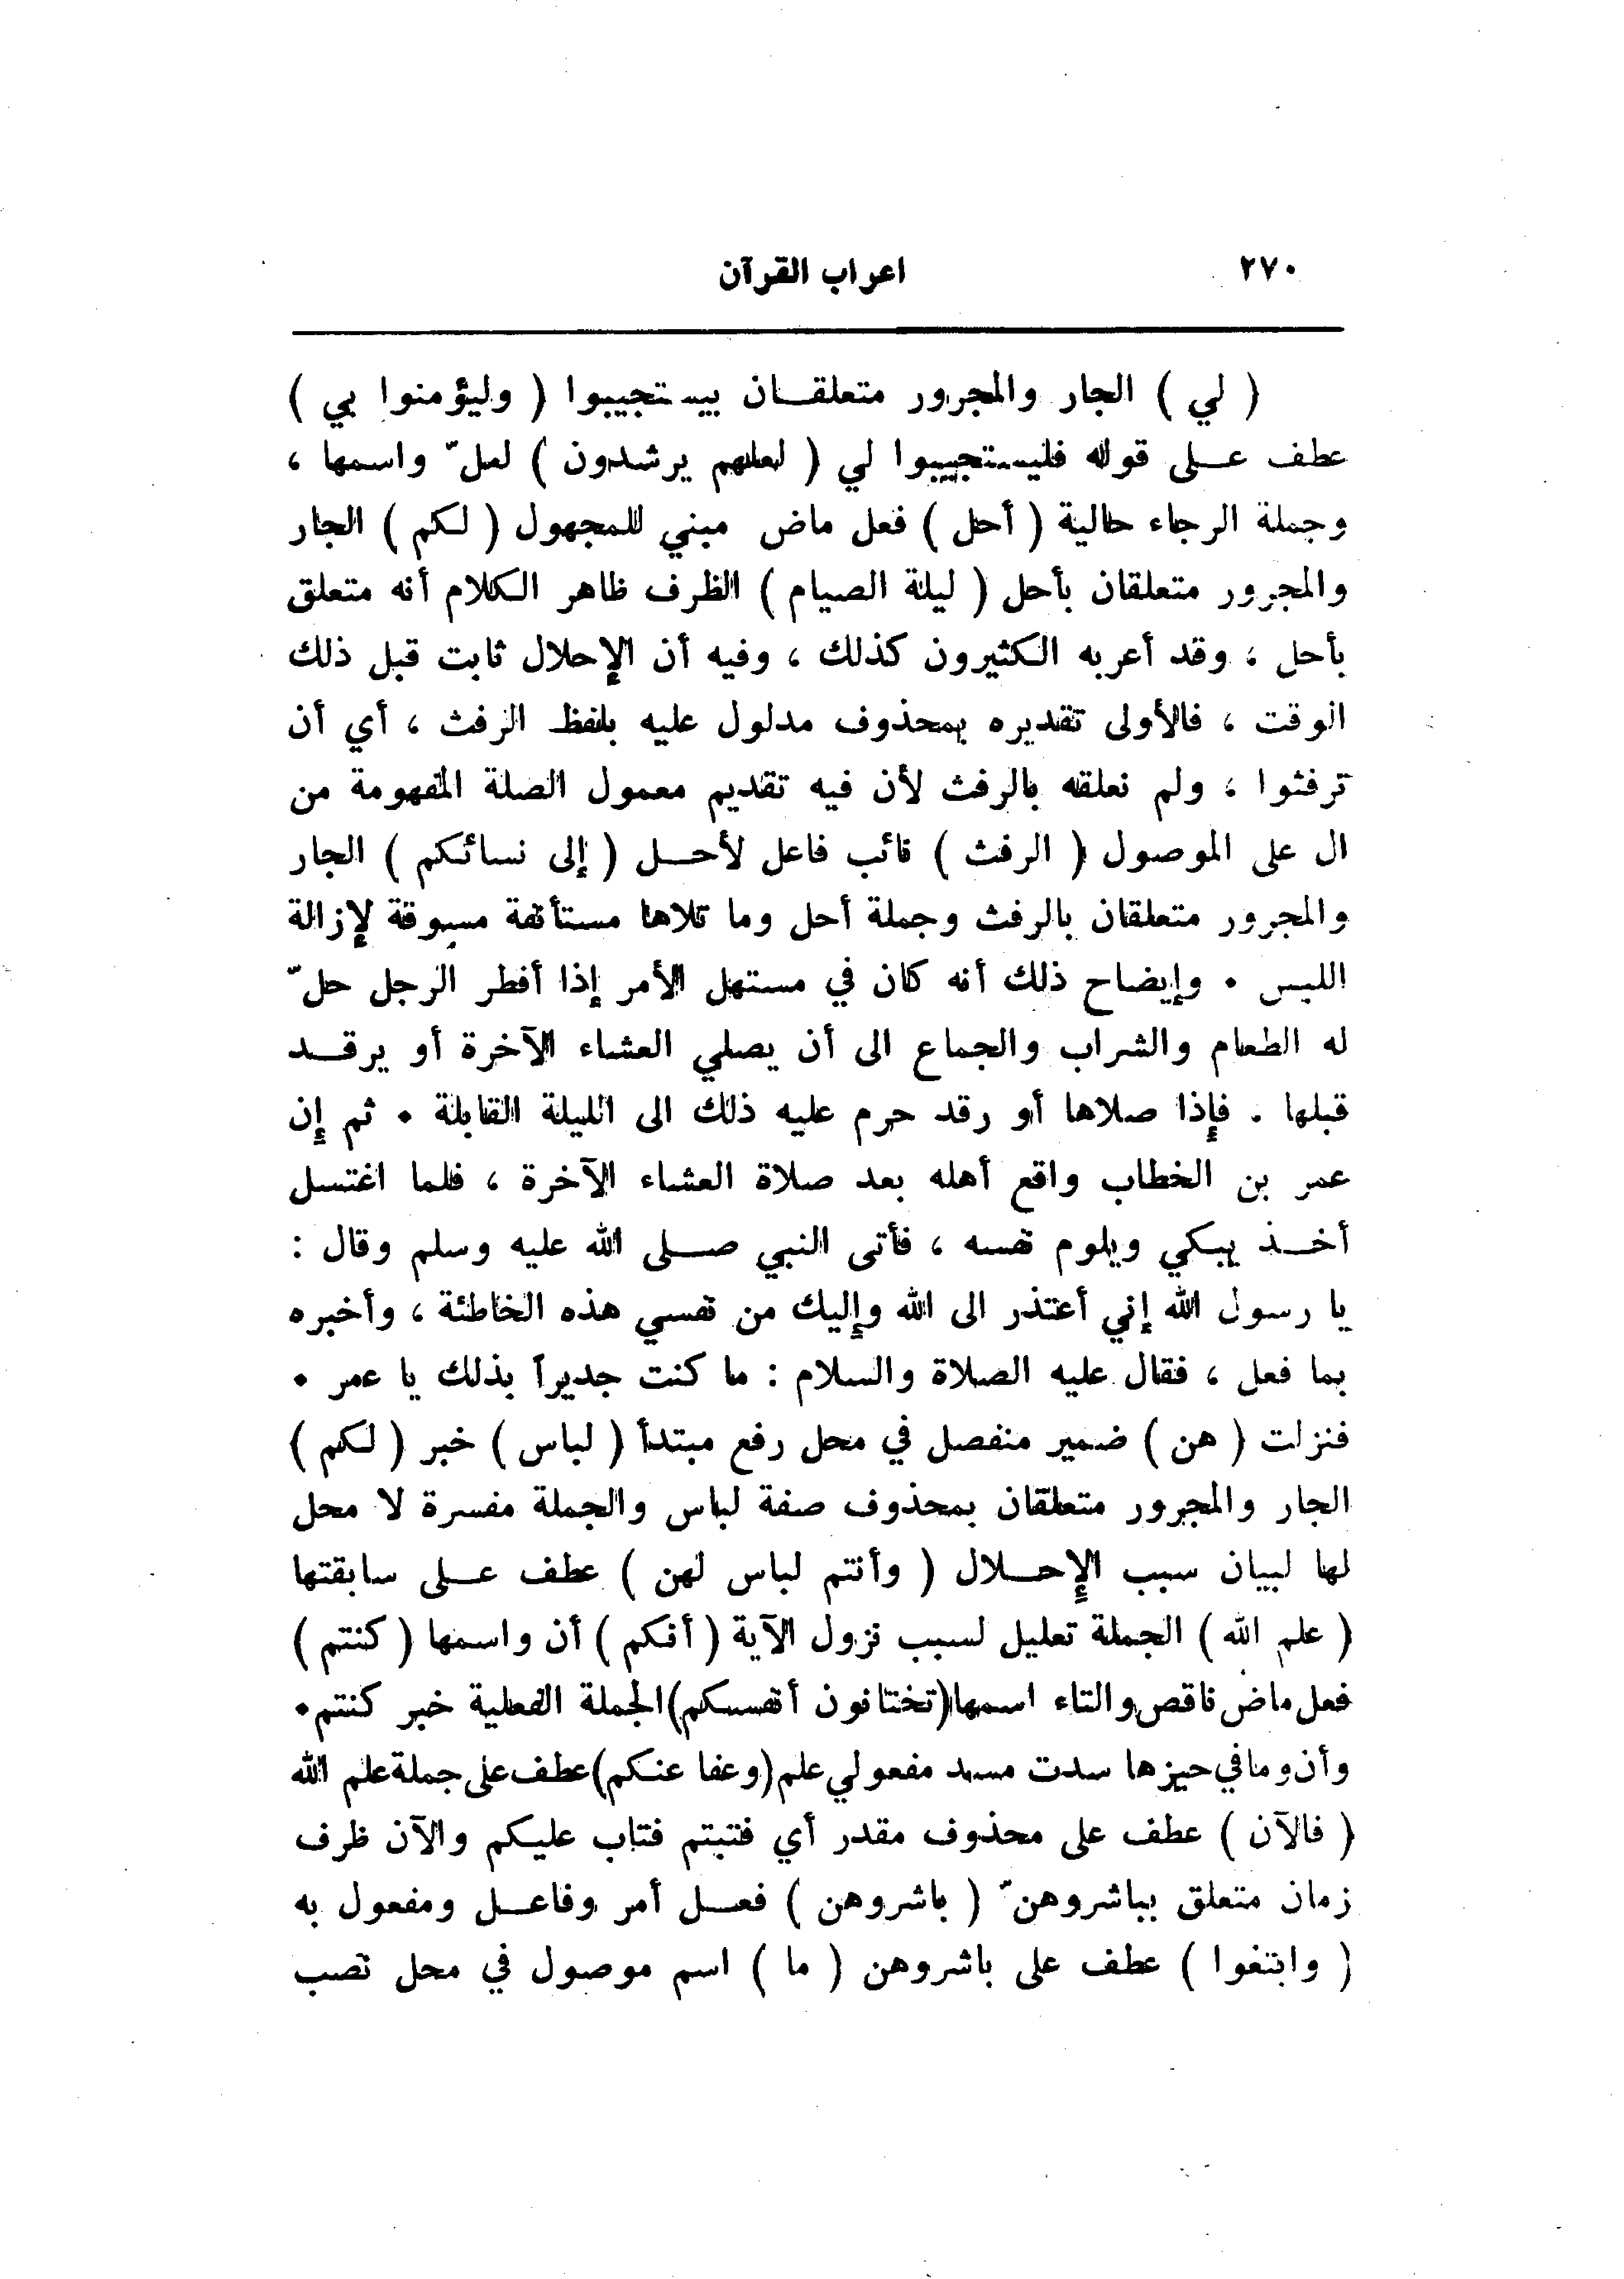 ٢٧٠
اعراب القرآن
( لي ) الجار والمجرور متعلقان بيستجيبوا ( وليؤمنوا بي )
عطف على قوله فليستجيبوا لي ( لعلهم يرشدون ) لعلّ واسمها ،
وجملة الرجاء حالية ( أحل ) فعل ماض مبني للمجهول ( لكم ) الجار
والمجرور متعلقان بأحل ( ليلة الصيام ) الظرف ظاهر الكلام أنه متعلق
بأحل ، وقد أعربه الكثيرون كذلك ، وفيه أن الإحلال ثابت قبل ذلك
الوقت ، فالأولى تقديره بمحذوف مدلول عليه بلفظ الرفث ، أي أن
ترفثوا ، ولم نعلقه بالرفث لأن فيه تقديم معمول الصلة المفهومة من
ال على الموصول ( الرفث ) نائب فاعل لأحل ( إلى نسائكم ) الجار
والمجرور متعلقان بالرفث وجملة أحل وما تلاها مستأنفة مسبوقة لإزالة
اللبس . وإيضاح ذلك أنه كان في مستهل الأمر إذا أفطر الرجل حلّ
له الطعام والشراب والجماع الى أن يصلي العشاء الآخرة أو يرقد
قبلها . فإذا صلاها أو رقد حرم عليه ذلك الى الليلة القابلة . ثم إن
عمر بن الخطاب واقع أهله بعد صلاة العشاء الآخرة ، فلما اغتسل
أخذ يبكي ويلوم نفسه ، فأتى النبي صلى الله عليه وسلم وقال :
يا رسول الله إني أعتذر الى الله وإليك من نفسي هذه الخاطئة ، وأخبره
بما فعل ، فقال عليه الصلاة والسلام : ما كنت جديراً بذلك يا عمر .
فنزلت ( هن ) ضمير منفصل في محل رفع مبتدأ ( لباس ) خبر ( لكم )
الجار والمجرور متعلقان بمحذوف صفة لباس والجملة مفسرة لا محل
لها لبيان سبب الإحلال ( وأنتم لباس لهن ) عطف على سابقتها
( علم الله ) الجملة تعليل لسبب نزول الآية ( أنكم ) أن واسمها ( كنتم )
فعل ماض ناقص والتاء اسمها ( تختانون أنفسكم ) الجملة الفعلية خبر كنتم .
وأن وما في حيزها سدت مسد مفعولي علم ( وعفا عنكم ) عطف على جملة علم الله
( فالآن ) عطف على محذوف مقدر أي فتبتم فتاب عليكم والآن ظرف
زمان متعلق بباشروهنّ ( باشروهن ) فعل أمر وفاعل ومفعول به
( وابتغوا ) عطف على باشروهن ( ما ) اسم موصول في محل نصب